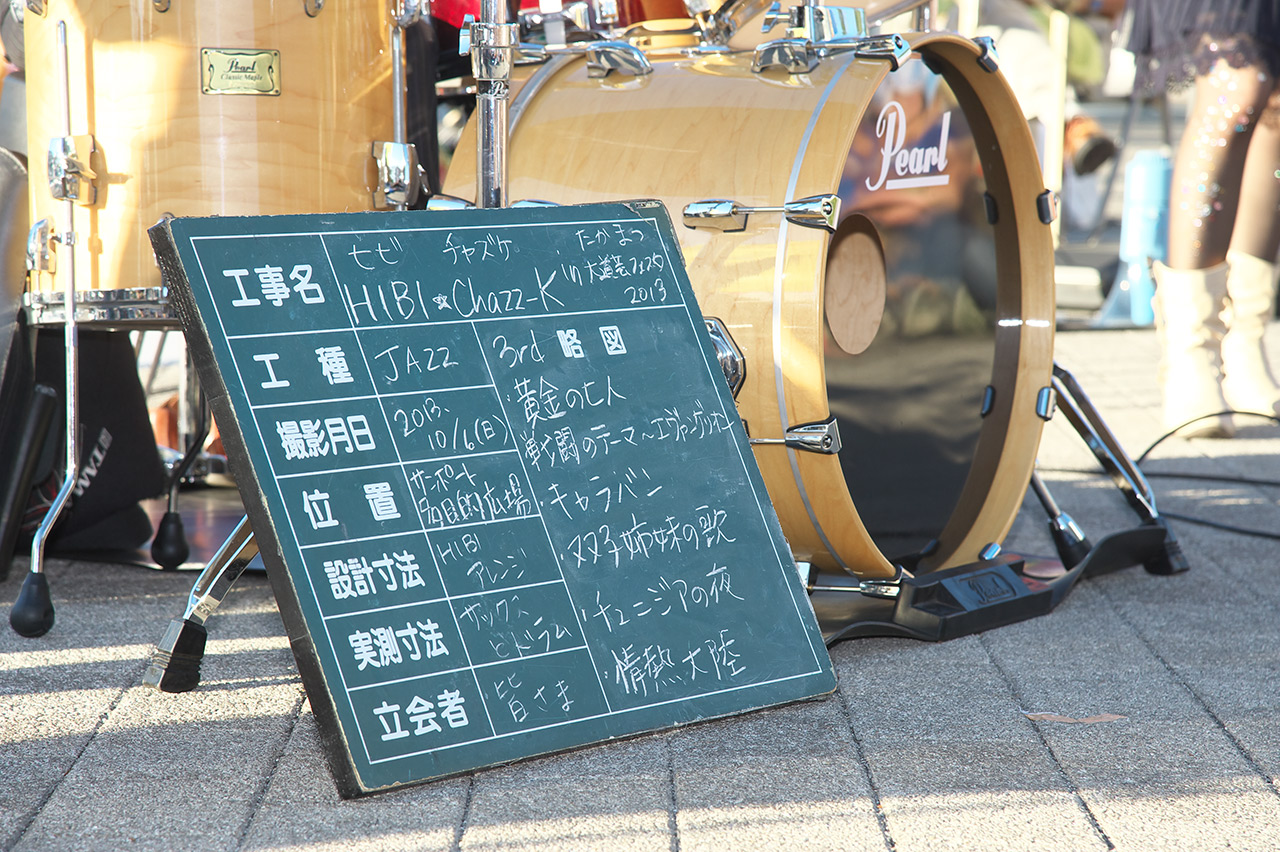 Pearl
Classic Maple
Pearl
工事名
ヒビ チャズケ たかまつ
HIBI☆Chazz-K in大道芸フェスタ
2013
工種
JAZZ
撮影月日
2013.
10/6(日)
位置
サンポート
多目的広場
設計寸法
HIBI
アレンジ
実測寸法
サックス
とドラム
立会者
皆さま
3rd 略図
・黄金の七人
・戦闘のテーマ〜エヴァンゲリオン
・キャラバン
・双子姉妹の歌
・チュニジアの夜
・情熱大陸
Pearl